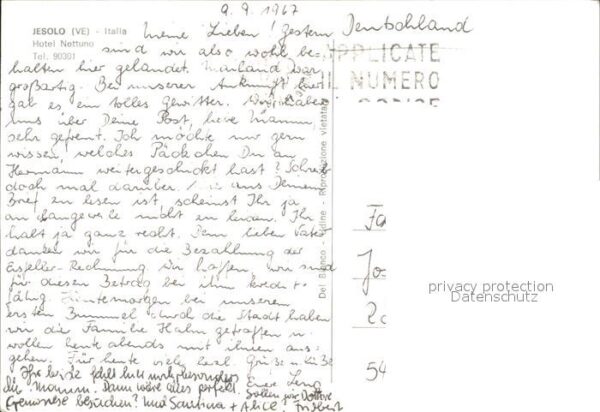 9. 9. 1967
JESOLO (VE) - Italia
Hotel Nettuno
Tel. 90301
Meine Lieben! Gestern
Deutschland
sind wir also wohl be-
halten hier gelandet. Mailand war
großartig. Bei unserer Ankunft hier
gab es ein tolles Gewitter. Wir haben
uns über Deine Post, liebe Mamm,
sehr gefreut. Ich möchte nur gern
wissen, welches Päckchen Du an
Hermann weitergeschickt hast? Schreib
doch mal darüber. Wie aus Deinem
Brief zu lesen ist, scheinst Ihr ja
an Langeweile nicht zu leiden. Ihr
habt ja ganz recht. Dem lieben Vater
danken wir für die Bezahlung der
Rechnung. Wir hoffen, wir sind
für diesen Betrag bei ihm kredit-
fähig. Heute morgen bei unserem
ersten Bummel durch die Stadt haben
wir die Familie Hahn getroffen u.
wollen heute abends mit ihnen aus-
gehen. Für heute viele herzl. Grüße u. Küße
Eure
Ihr beide fehlt hier, besonders
die Mamm. Dann wäre alles perfekt. Sollen wir Dottore
Cremonese besuchen? Und Santina + Alice?
APPLICATE
IL NUMERO
Del Bianco - Udine - Riproduzione Vietata
Fa
Jo
54
privacy protection
Datenschutz